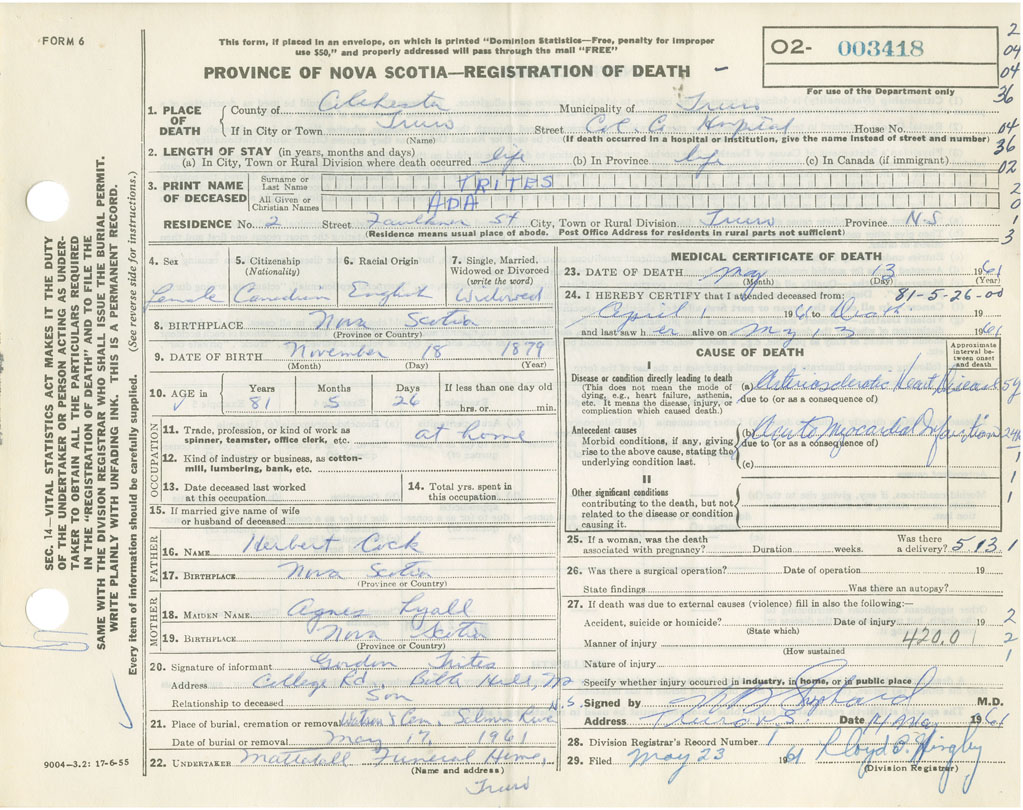 FORM 6
This form, if placed in an envelope, on which is printed "Dominion Statistics—Free, penalty for improper
use $50," and properly addressed will pass through the mail "FREE"
PROVINCE OF NOVA SCOTIA—REGISTRATION OF DEATH
02- 003418
For use of the Department only
2
04
04
36
04
36
02
2
0
1
3
SEC. 14—VITAL STATISTICS ACT MAKES IT THE DUTY
OF THE UNDERTAKER OR PERSON ACTING AS UNDER-
TAKER TO OBTAIN ALL THE PARTICULARS REQUIRED
IN THE "REGISTRATION OF DEATH" AND TO FILE THE
SAME WITH THE DIVISION REGISTRAR WHO SHALL ISSUE THE BURIAL PERMIT.
WRITE PLAINLY WITH UNFADING INK. THIS IS A PERMANENT RECORD.
Every item of information should be carefully supplied. (See reverse side for instructions.)
1. PLACE OF DEATH
County of Colchester Municipality of Truro
If in City or Town Truro Street Col. Co Hospital House No.
(Name) (If death occurred in a hospital or institution, give the name instead of street and number)
2. LENGTH OF STAY (in years, months and days)
(a) In City, Town or Rural Division where death occurred life (b) In Province life (c) In Canada (if immigrant)
3. PRINT NAME OF DECEASED
Surname or Last Name TRITES
All Given or Christian Names ADA
RESIDENCE No. 2 Street Faulkner St City, Town or Rural Division Truro Province N.S
(Residence means usual place of abode. Post Office Address for residents in rural parts not sufficient)
4. Sex
Female
5. Citizenship (Nationality)
Canadian
6. Racial Origin
English
7. Single, Married, Widowed or Divorced (write the word)
Widowed
8. BIRTHPLACE Nova Scotia
(Province or Country)
9. DATE OF BIRTH November 18 1879
(Month) (Day) (Year)
10. AGE in Years Months Days If less than one day old
81 5 26 hrs. or min.
OCCUPATION
11. Trade, profession, or kind of work as
spinner, teamster, office clerk, etc. at home
12. Kind of industry or business, as cotton-
mill, lumbering, bank, etc.
13. Date deceased last worked
at this occupation
14. Total yrs. spent in
this occupation
15. If married give name of wife
or husband of deceased
FATHER
16. NAME Herbert Cock
17. BIRTHPLACE Nova Scotia
(Province or Country)
MOTHER
18. MAIDEN NAME Agnes Lyall
19. BIRTHPLACE Nova Scotia
(Province or Country)
20. Signature of informant Gordon Trites
Address College Rd, Bible Hill,
Relationship to deceased Son N.S.
21. Place of burial, cremation or removal Cem. Salmon River
Date of burial or removal May 17, 1961
22. UNDERTAKER Mattatall Funeral Home,
(Name and address)
Truro
9004—3.2: 17-6-55
MEDICAL CERTIFICATE OF DEATH
23. DATE OF DEATH May 13 1961
(Month) (Day) (Year)
24. I HEREBY CERTIFY that I attended deceased from: 81-5-26-00
April 1 1961 to Death 19
and last saw her alive on May 13 1961
CAUSE OF DEATH
Approximate interval be-tween onset and death
I
Disease or condition directly leading to death
(This does not mean the mode of
dying, e.g., heart failure, asthenia,
etc. It means the disease, injury, or
complication which caused death.)
(a) Arteriosclerotic Heart Disease 5y
due to (or as a consequence of)
Antecedent causes
Morbid conditions, if any, giving
rise to the above cause, stating the
underlying condition last.
(b) Acute Myocardial Infarction
due to (or as a consequence of)
(c)
II
Other significant conditions
contributing to the death, but not
related to the disease or condition
causing it.
1
1
1
25. If a woman, was the death
associated with pregnancy? Duration weeks. Was there a delivery? 5 13 1
26. Was there a surgical operation? Date of operation 19
State findings Was there an autopsy?
27. If death was due to external causes (violence) fill in also the following:—
Accident, suicide or homicide? Date of injury 19
(State which)
Manner of injury 420.0
(How sustained
Nature of injury
2
2
1
Specify whether injury occurred in industry, in home, or in public place
Signed by M.D.
Address Truro N.S. Date 14 May 1961
28. Division Registrar's Record Number 1
29. Filed May 23 1961 Lloyd
(Division Registrar)